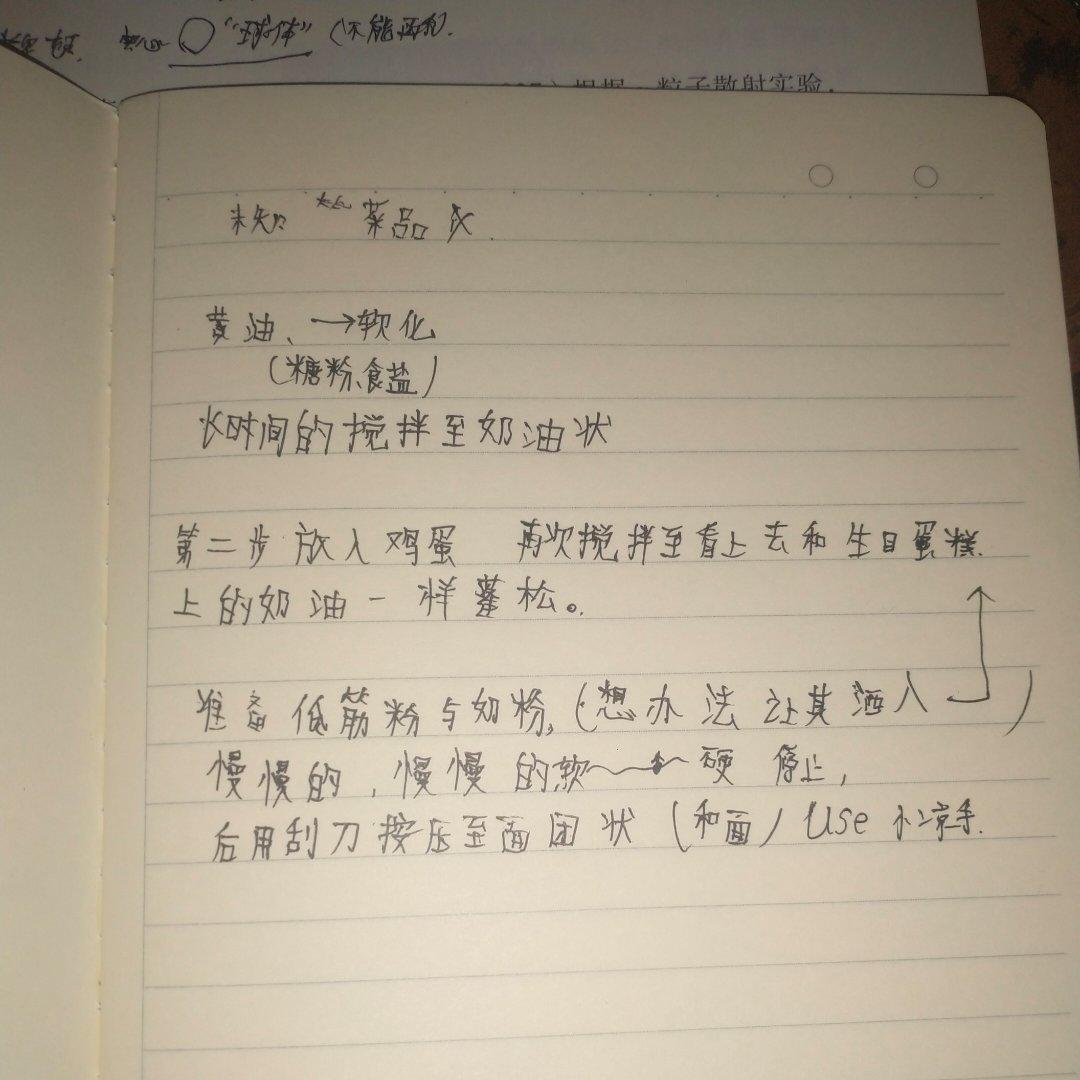 "球体"（不能画
粒子散射实验，
未知 菜品
黄油、→软化
（糖粉、食盐）
长时间的搅拌至奶油状
第二步 放入鸡蛋 再次搅拌至看上去和生日蛋糕
上的奶油一样蓬松。
准备低筋粉与奶粉，（想办法让其洒入）
慢慢的，慢慢的软 硬 停止，
后用刮刀按压至面团状（和面）Use 小凉手.